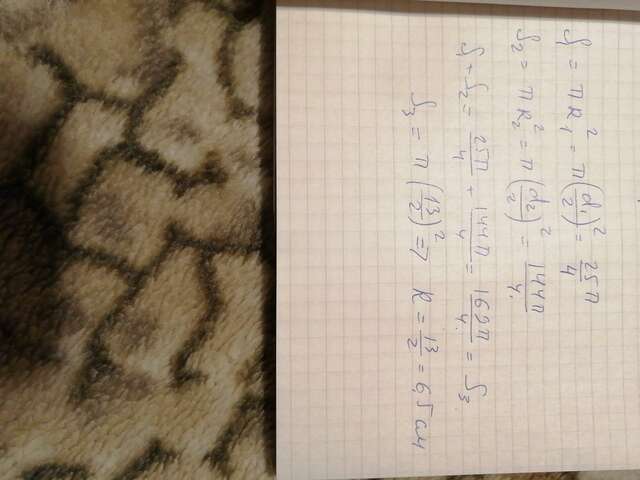 S₁ = πR₁² = π(d₁/2)² = 25π/4
S₂ = πR₂² = π(d₂/2)² = 144π/4.
S₁ + S₂ = 25π/4 + 144π/4 = 169π/4 = S₃
S₃ = π(13/2)² => R = 13/2 = 6,5 см